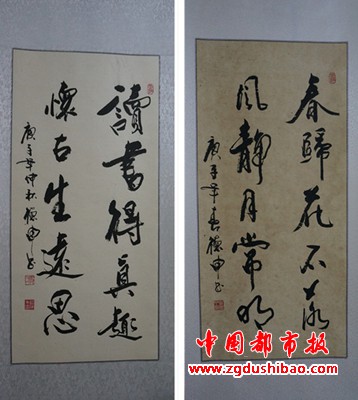 讀書得真趣
懷古生遠思
庚子年仲秋德申书
春歸花不落
风靜月常明
庚子年春德申书
中国都市报
www.zgdushibao.com